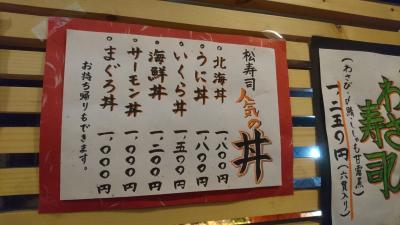 松寿司 人気の丼
・北海丼 一、八〇〇円
・うに丼 一、八〇〇円
・いくら丼 一、五〇〇円
・海鮮丼 一、二〇〇円
・サーモン丼 一、〇〇〇円
・まぐろ丼 一、〇〇〇円
お持ち帰りもできます。
寿司
一、二五〇円(六貫入り)